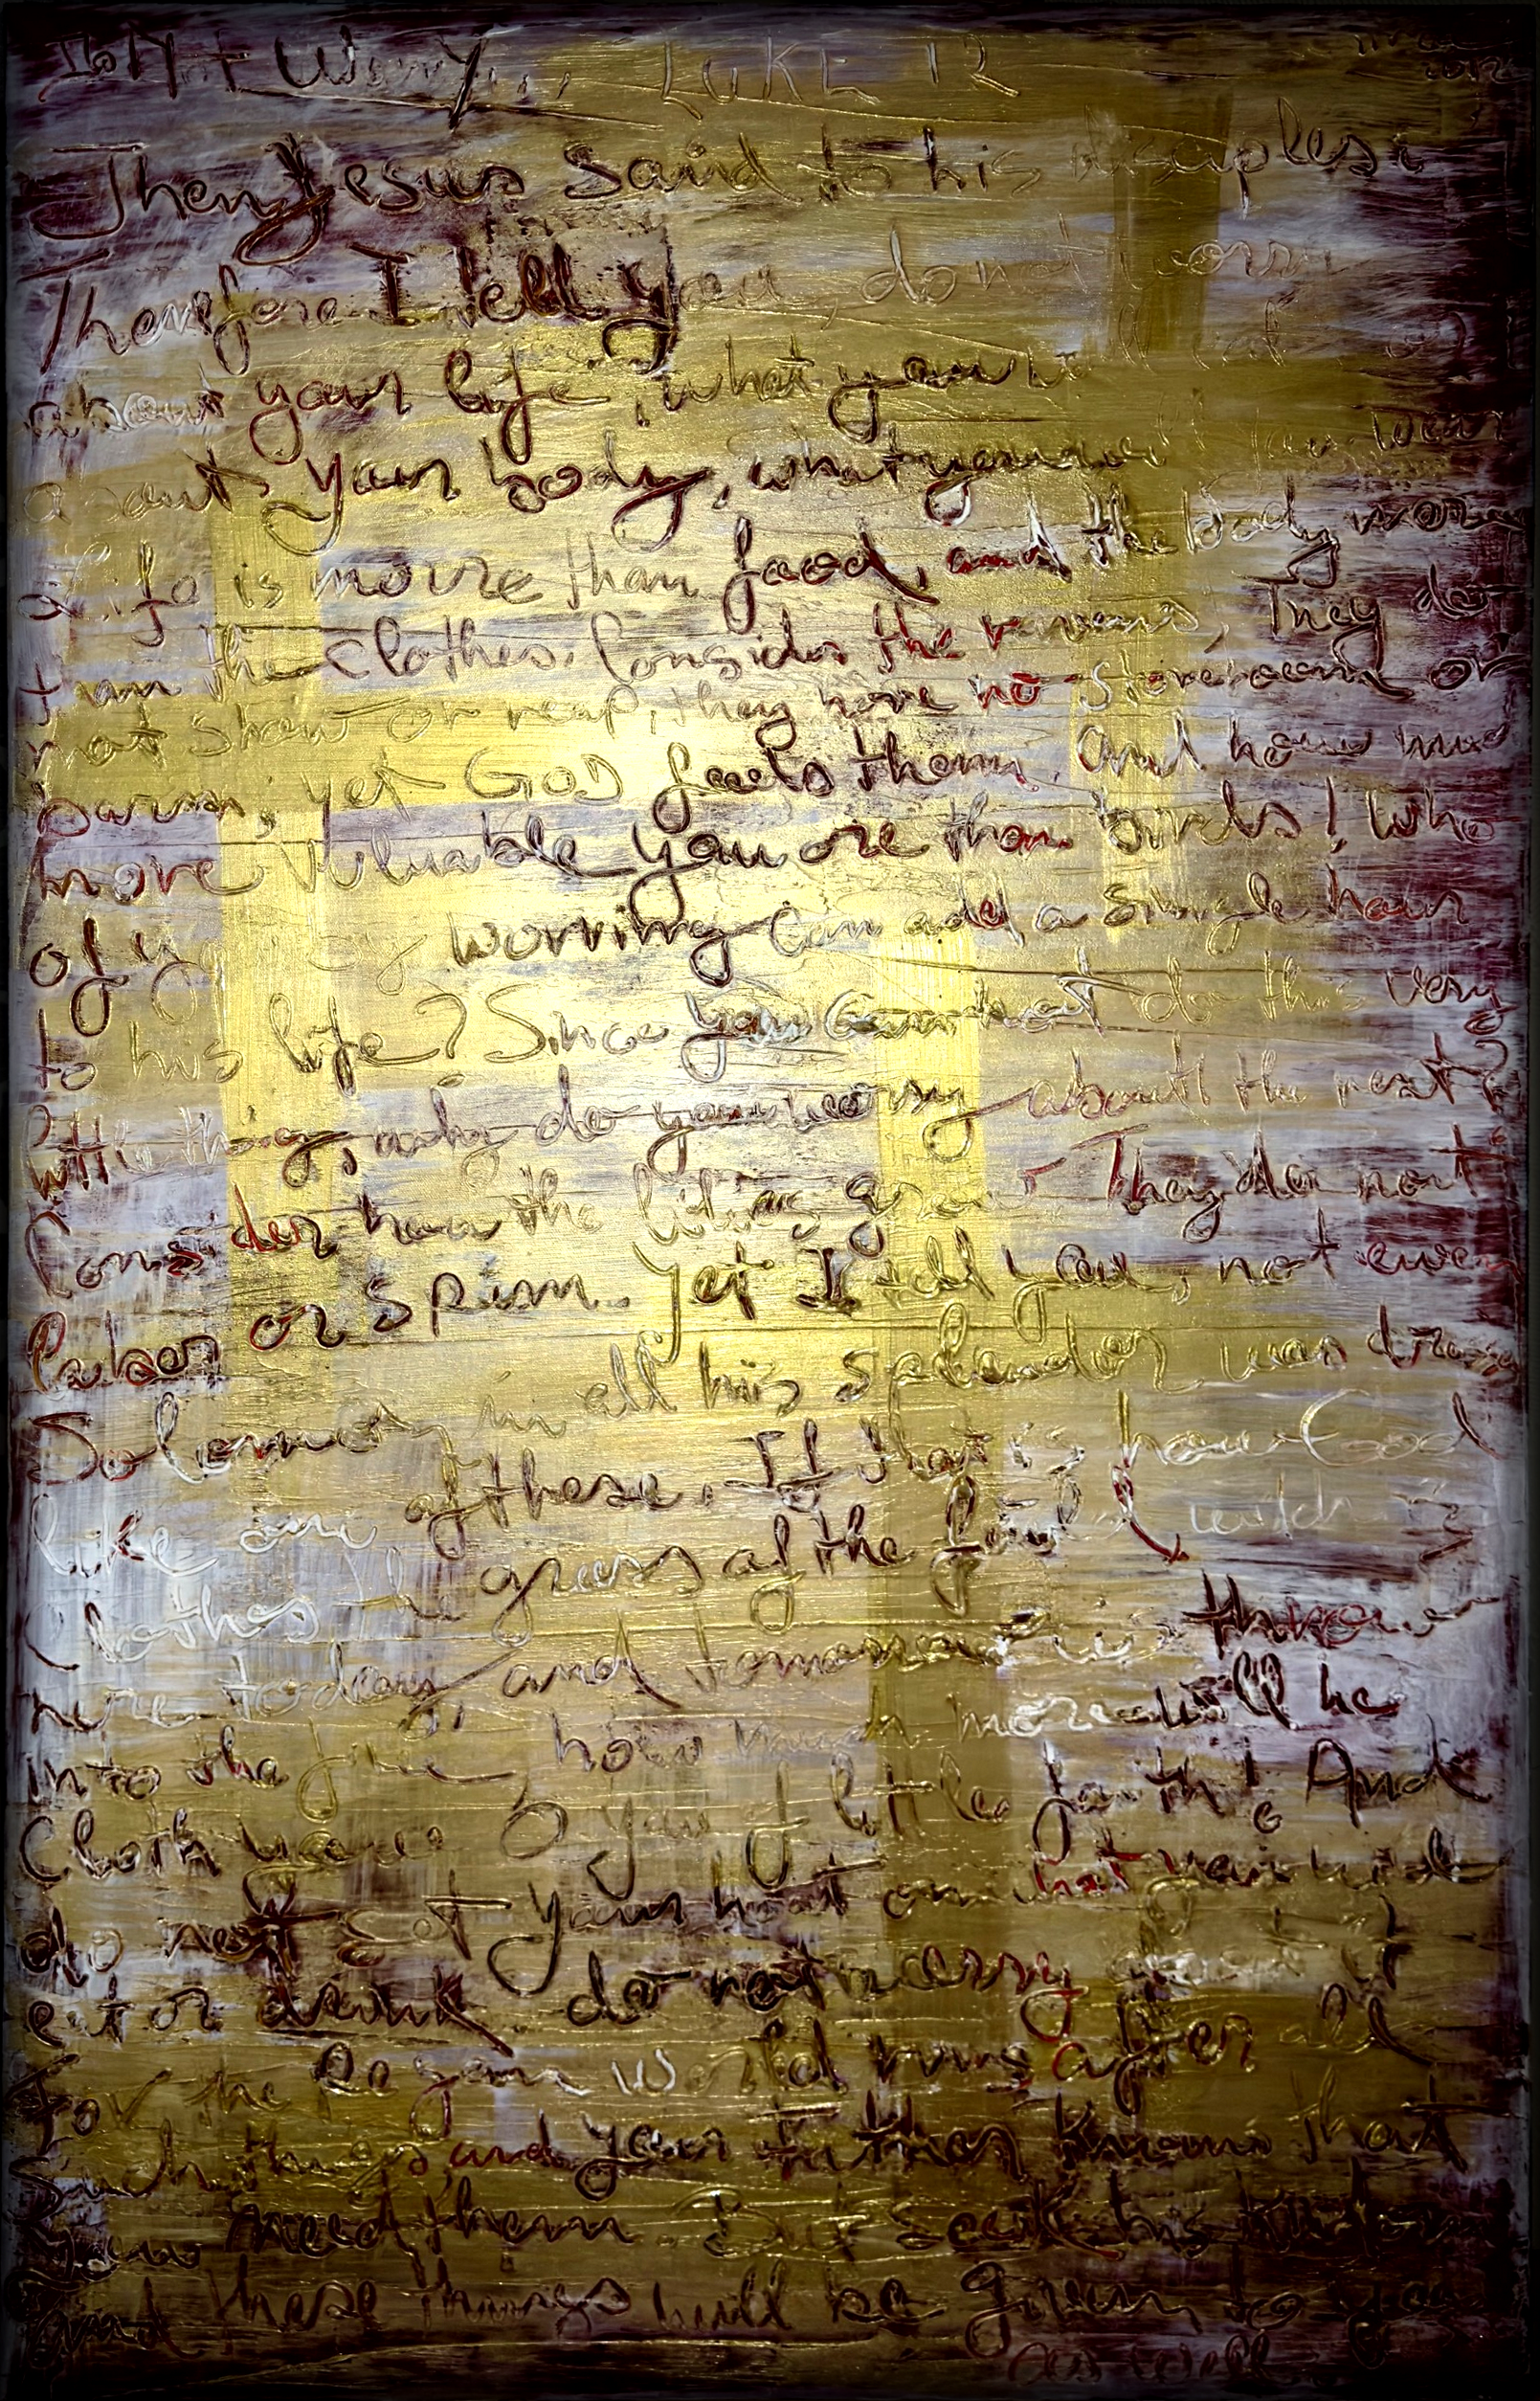 Do Not Worry... LUKE 12
Then Jesus said to his disciples:
Therefore I tell you, do not worry
about your life, what you will eat or
about your body, what you will you wear
Life is moure than food, and the body more
than the clothes. Consider the ravens, They do
not show or reap, they have no storeroom or
barns; yet GOD feeds them. and how muc
more valuable you are than birds! Who
of you by worriing can add a single hour
to his life? Since you can not do this very
little thing, why do you worry about the rest?
Consider how the lilies grow. They do not
labor or spinn. Yet I tell you, not even
Solomon in all his splendor was dress
like one of these. If that is how God
Clothes the grass of the field, witch is
here today, and tomorrow is throwe
into the fire, how much more will he
Cloth you O you of little faith! And
do not set your heart on what you will
eat or drink. do not worry about it
For the pegan world runs after all
Such things, and your father knows that
you need them. But seek his Kindom
and these things will be given to you
as well